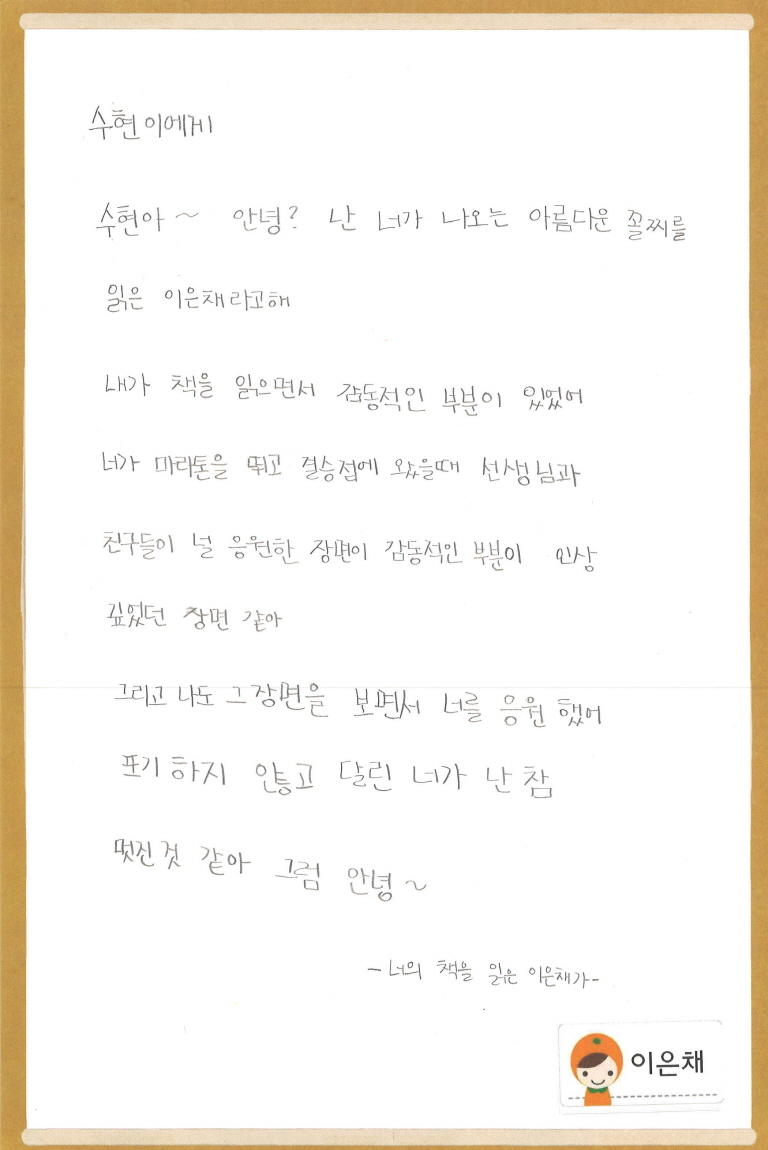 수현이에게
수현아~ 안녕? 난 너가 나오는 아름다운 꼴찌를
읽은 이은채라고해
내가 책을 읽으면서 감동적인 부분이 있었어
너가 마라톤을 뛰고 결승점에 왔을때 선생님과
친구들이 널 응원한 장면이 감동적인 부분이 인상
깊었던 장면 같아
그리고 나도 그 장면을 보면서 너를 응원 했어
포기 하지 안히고 달린 너가 난 참
멋진것 같아 그럼 안녕~
-너의 책을 읽은 이은채가-
이은채